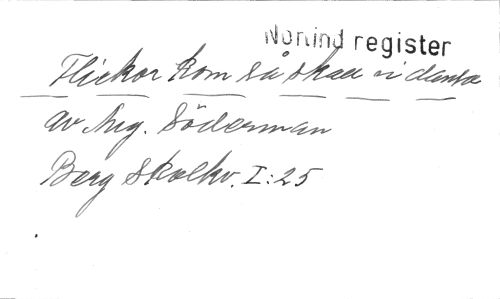 Nordind register
Flickor kom så skall vi dansa
av Aug. Söderman
Berg Skolkv. I:25